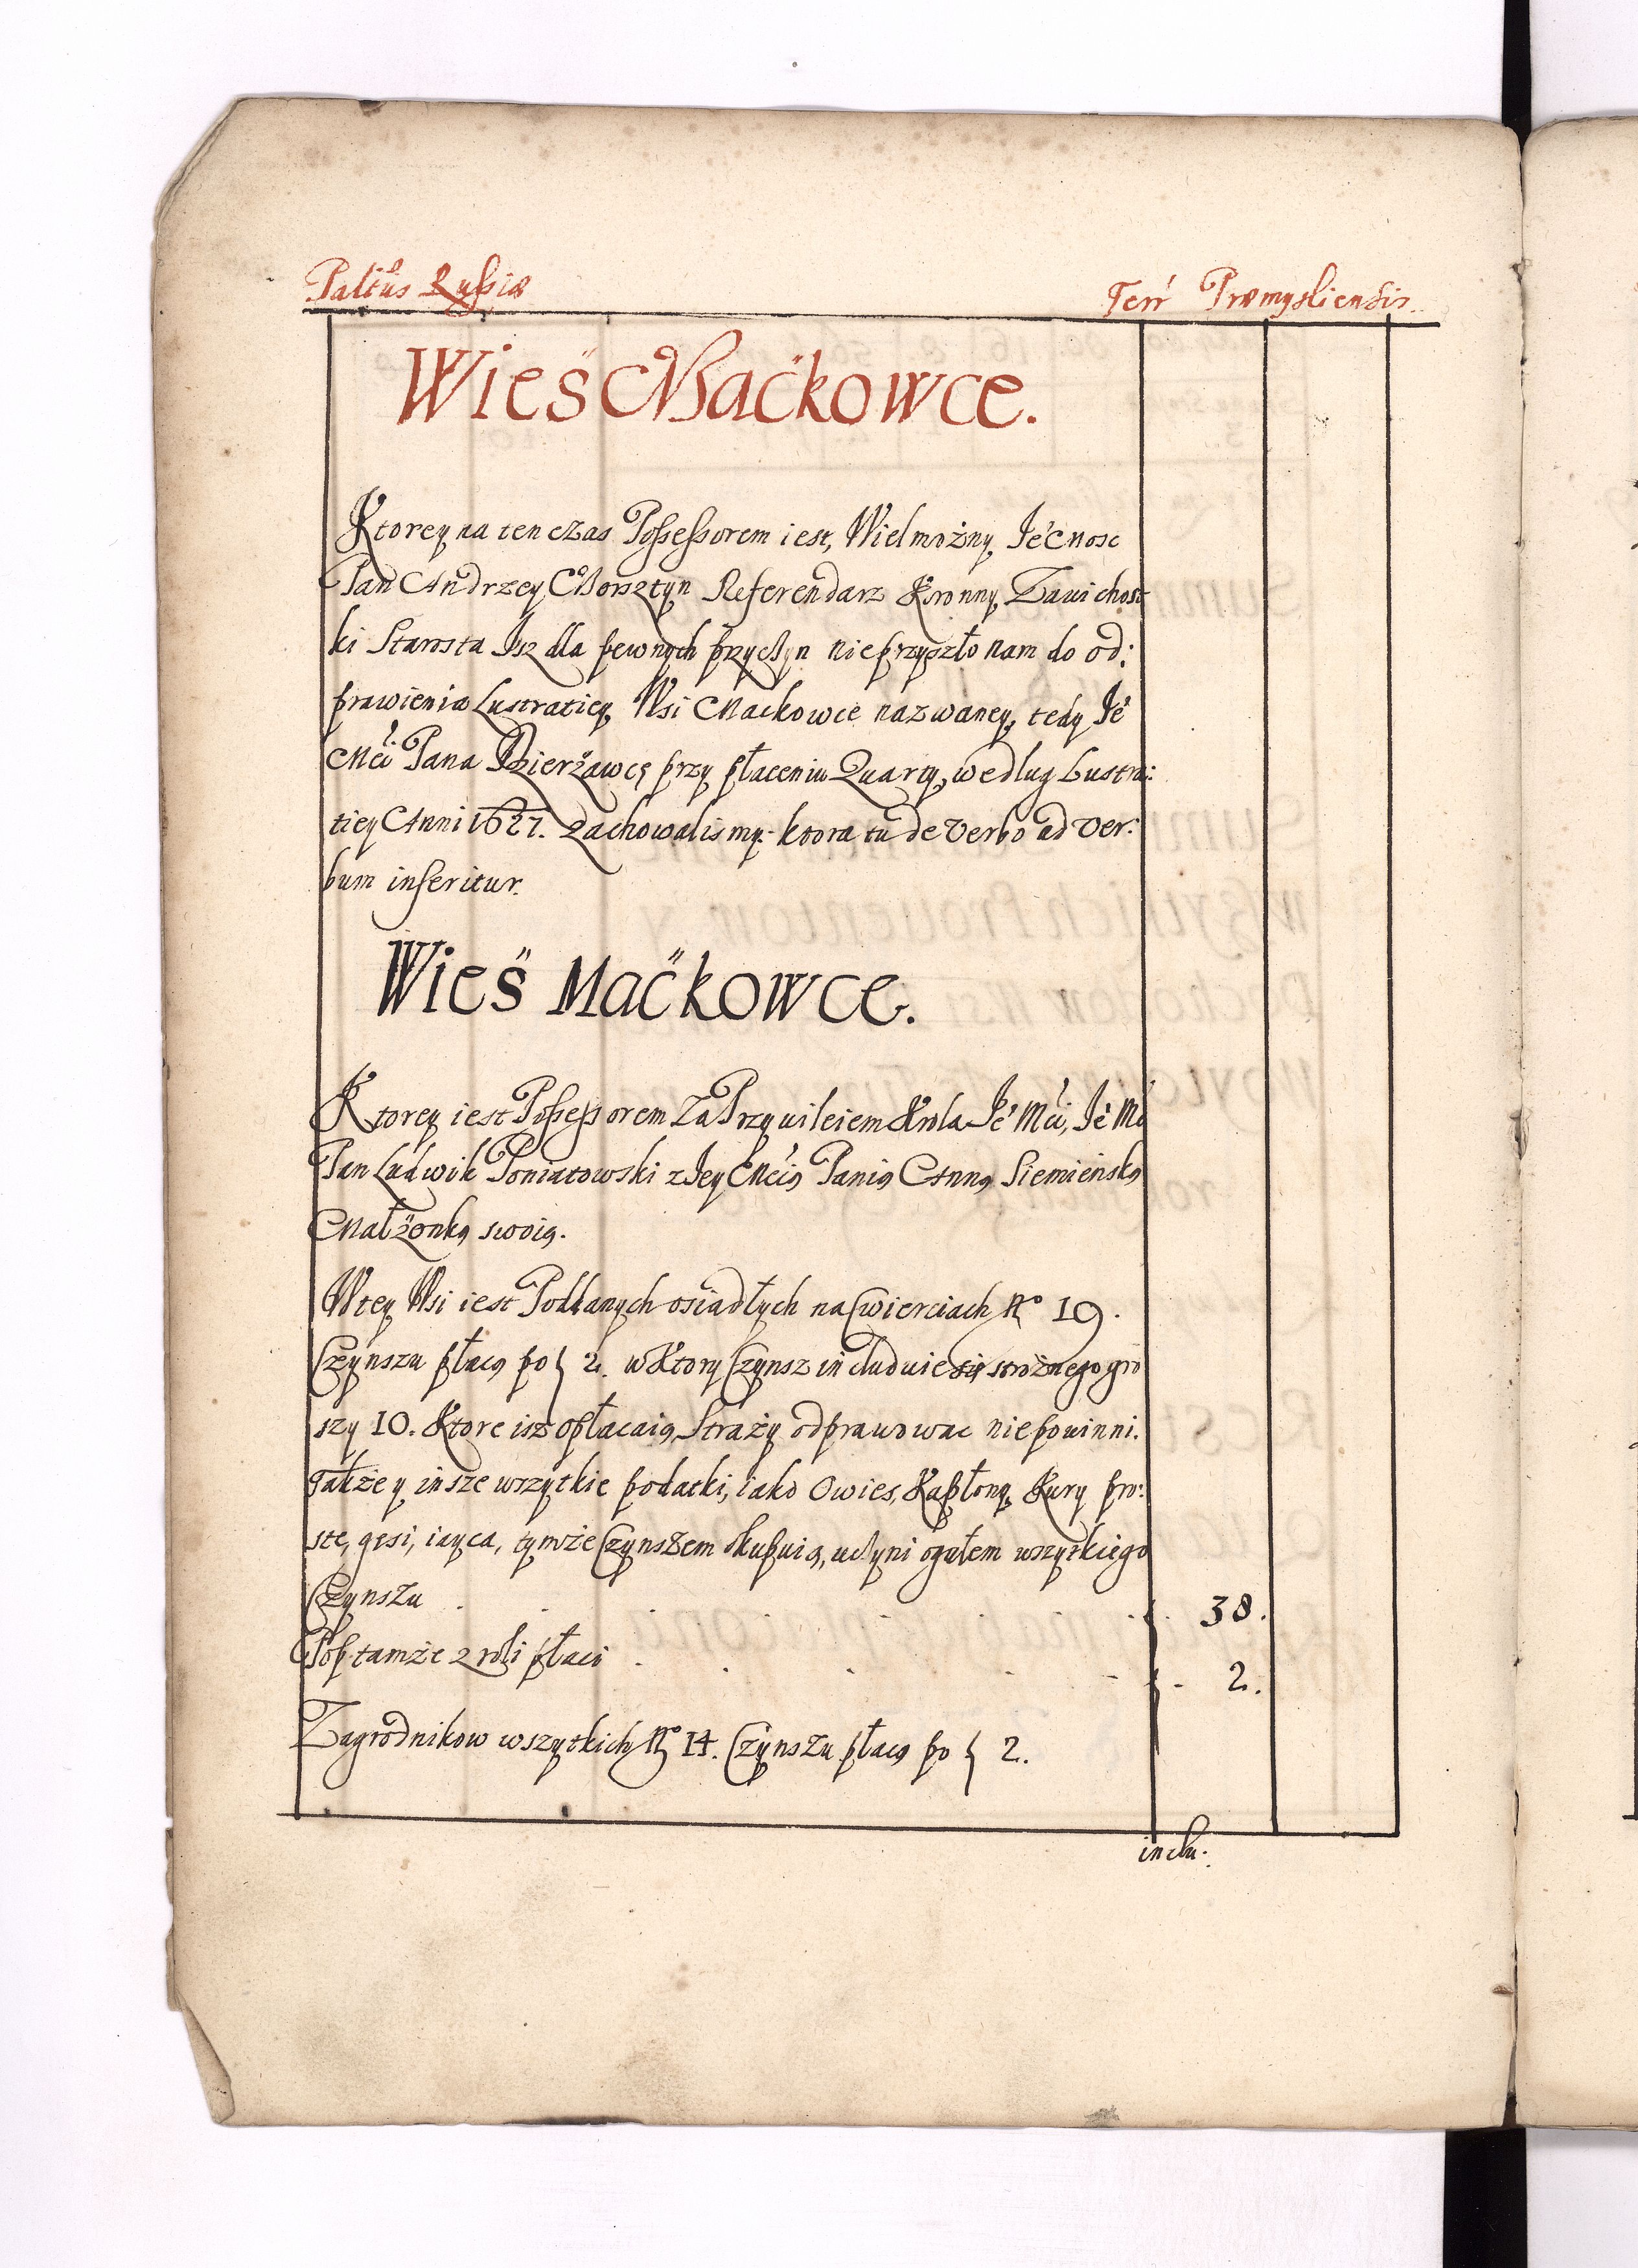 Paltūs Russiæ
Terr Præmysliensis.
Wieś Maćkowce.
Ktorey na ten czas Possessorem iest, Wielmożny Jeᵒ Mosc
Pan Andrzey Morsztyn Referendarz Kronny Zawichost
ki Starosta Isz dla pewnych przyczyn nieprzyszło nam do od:
prawienia Lustratiey Wsi Mackowce nazwaney, tedy Jeᵒ
Mći Pana Dzierżawcę przy płaceniu Quarty, według Lustra:
tiey Anni 1627. zachowalismy: ktora tu de Verbo ad Ver:
bum inseritur.
Wieś Maćkowce.
Ktorey iest Possessorem za Przywileiem Krola Jeᵒ Mći, Jeᵒ Mć
Pan Ludwik Poniatowski z Jey Mcią Panią Anną Siemieńską
Małżonką swoią.
W tey Wsi iest Poddanych osiadłych na Cwierciach Nᵒ 19.
Czynszu płacą po ƒ 2. w Ktory Czynsz includuie się strożnego gro
szy 10. Ktore isz opłacaią, Straży odprawowac niepowinni.
Także y insze wszytkie podatki, iako Owies, Kapłony, Kury pro:
ste, gęsi, iayca, tymże Czynszem okupuią, uczyni ogułem wszytkiego
Czynszu . . . . . . . ƒ. 38.
Pop tamże z roli płaci . . . . . ƒ. 2.
Zagrodnikow wszytkich Nᵒ 14. Czynszu płacą po ƒ 2.
inclu: